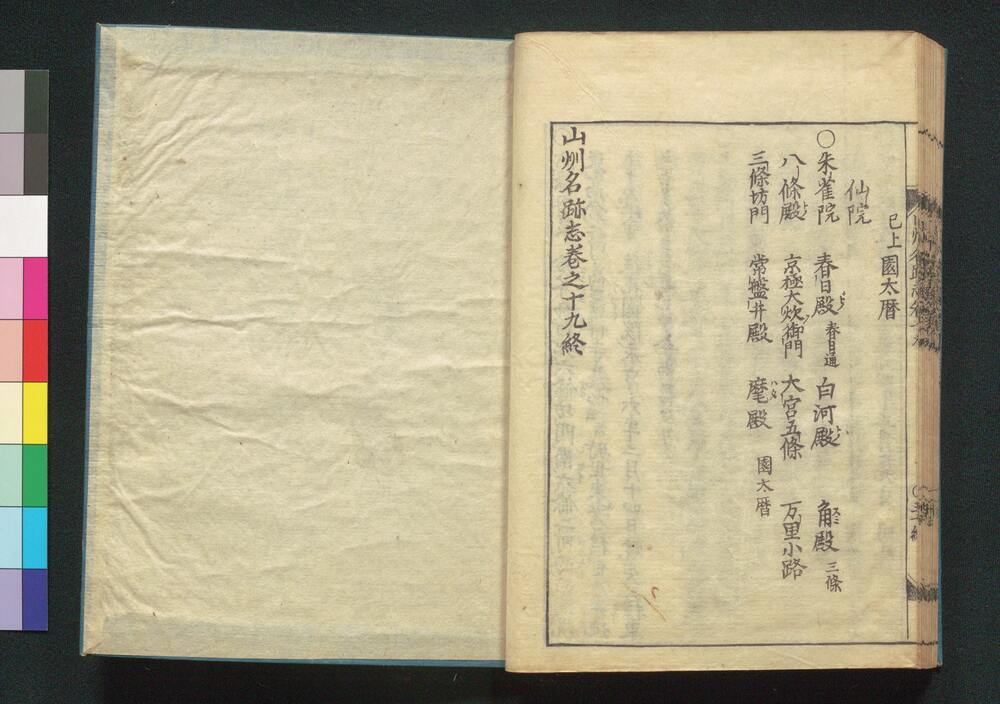 已上園太暦
仙院
○朱雀院 春日殿 春日通 白河殿 角殿 三條
八條殿 京極大炊御門 大宮五條 万里小路
三條坊門 常盤井殿 麾殿 園太暦
山州名跡志巻之十九終